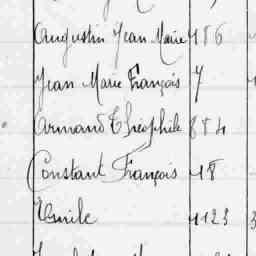 Augustin Jean Marie 486
Jean Marie François 7
Armand Théophile 884
Constant François 18
Emile 1123